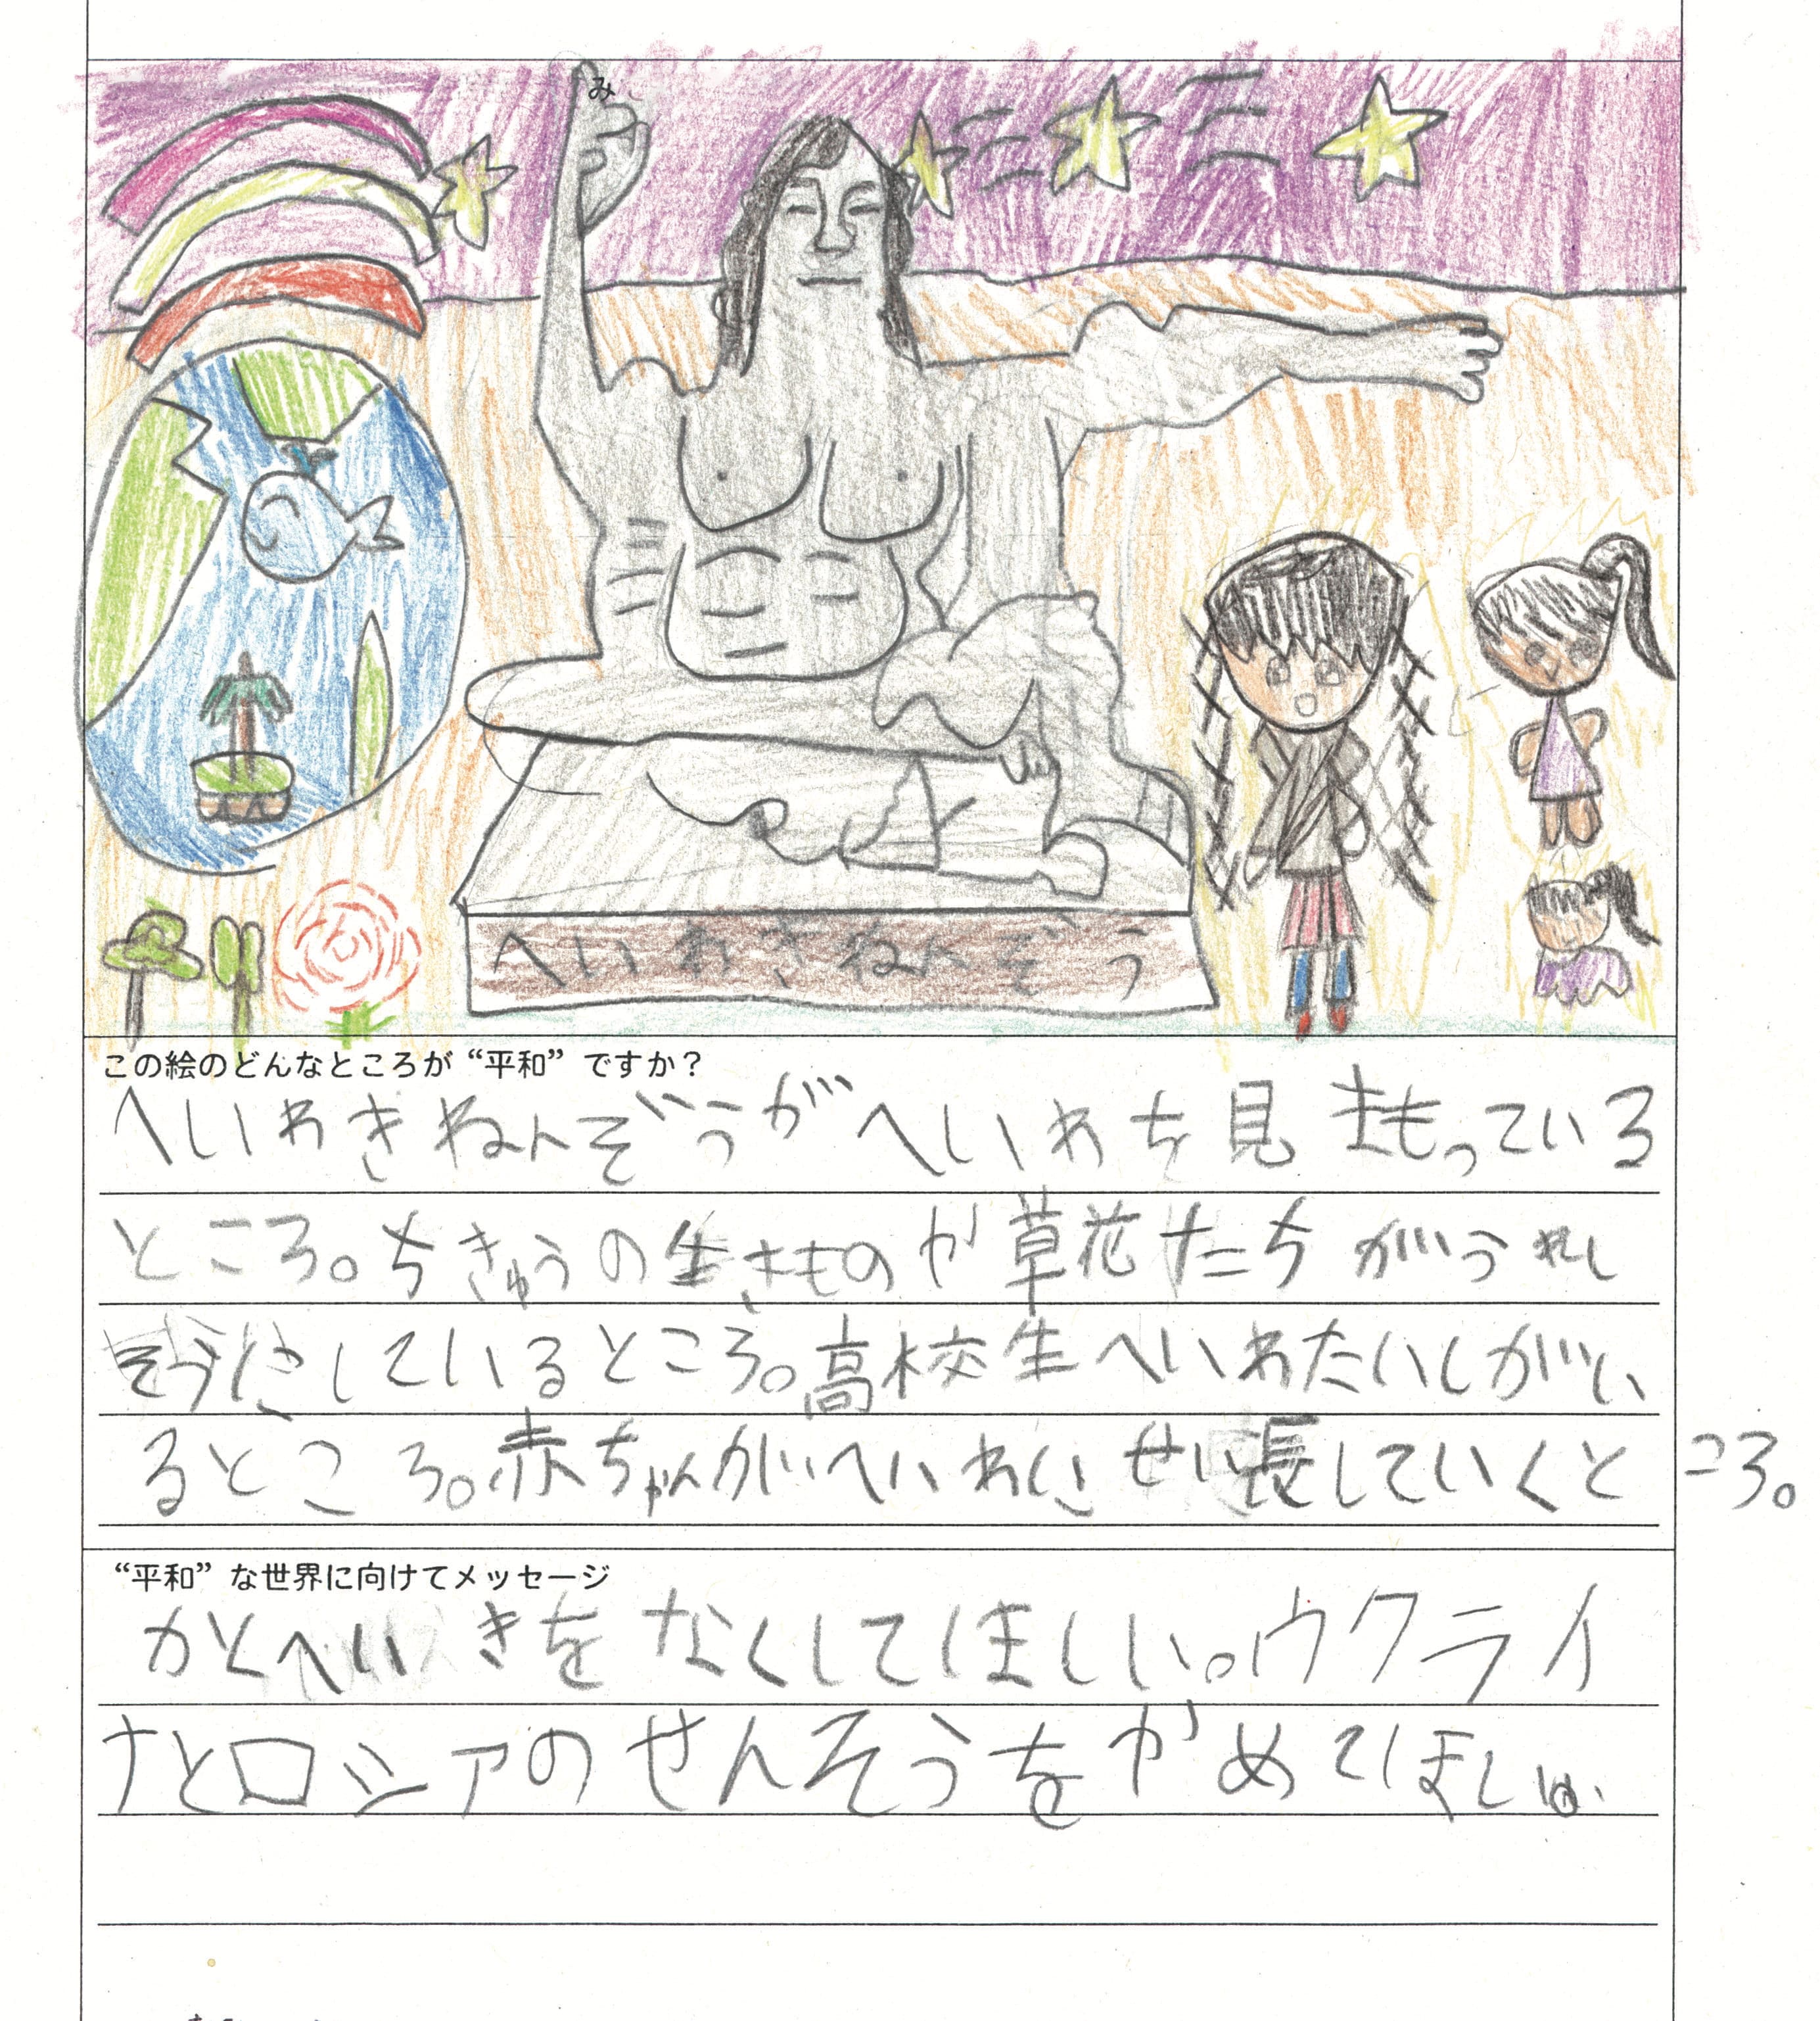 み
へいわきねんぞう
この絵のどんなところが“平和”ですか？
へいわきねんぞうがへいわを見まもっている
ところ。ちきゅうの生きものや草花たちがうれし
そうにしているところ。高校生へいわたいしがい
るところ。赤ちゃんがへいわにせい長していくところ。
“平和”な世界に向けてメッセージ
かくへいきをなくしてほしい。ウクライ
ナとロシアのせんそうをやめてほしい。